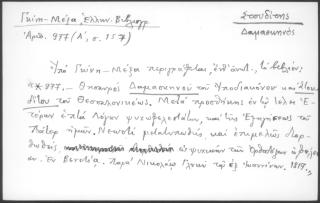 Γκίνη - Μέξα, Ἑλλην. Βιβλιογρ.
Ἀριθ. 977 (Α', σ. 157)
Στουδίτης
Δαμασκηνὸς
Ὑπὸ Γκίνη - Μέξα περιγράφεται, ἐνθ' ἀνωτ., τὸ βιβλίον:
"*977, - Θησαυρὸς Δαμασκηνοῦ τοῦ Ὑποδιακόνου καὶ Στου-
δίτου τοῦ Θεσσαλονικέως. Μετὰ προσθήκης ἐν τῷ τέλει Ἑ-
τέρων ἑπτὰ Λόγων ψυχωφελεστάτων, καὶ τῆς Ἐξηγήσεως τοῦ
Πάτερ ἡμῶν. Νεωστὶ μετατυπωθεὶς, καὶ ἐπιμελῶς διορ-
θωθεὶς, εἰς ψυχικὴν τῶν Ὀρθοδόξων ὠφέλει-
αν. Ἐν Βενετίᾳ. Παρὰ Νικολάῳ Γλυκεῖ τῷ ἐξ Ἰωαννίνων. 1817."